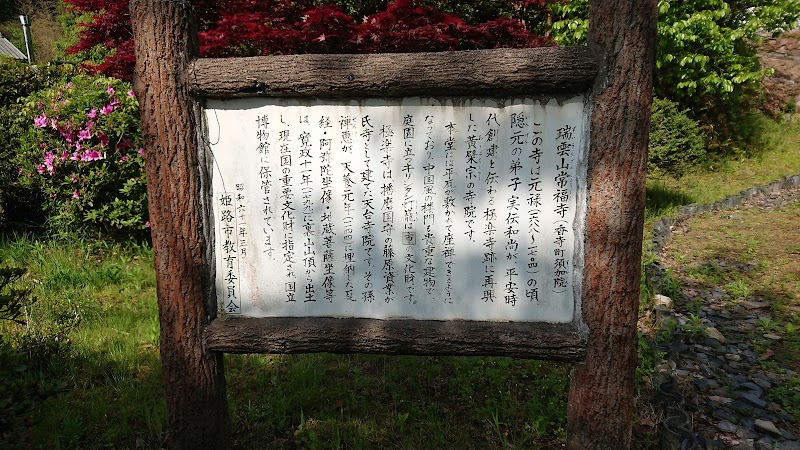 瑞雲山常福寺(香寺町須加院)
この寺は元禄(一六八八~一七〇四)の頃、
隠元の弟子実伝和尚が、平安時
代創建と伝わる極楽寺跡に再興
した黄檗宗の寺院です。
本堂には平瓦が敷かれて座禅できるように
なっており、中国風楼門も貴重な建物で、
庭園に立つ寺の
文化財です。
極楽寺は、播磨国守の藤原
が
氏寺として建てた天台寺院です。その孫
禅恵が、天養元年(一一四四)に埋納した瓦
経・阿弥陀坐像・地蔵菩薩坐像等
は、寛政十一年(一七九九)に裏山山頂から出土
し、現在国の重要文化財に指定され、国立
博物館に保管されています。
昭和六十一年三月
姫路市教育委員会